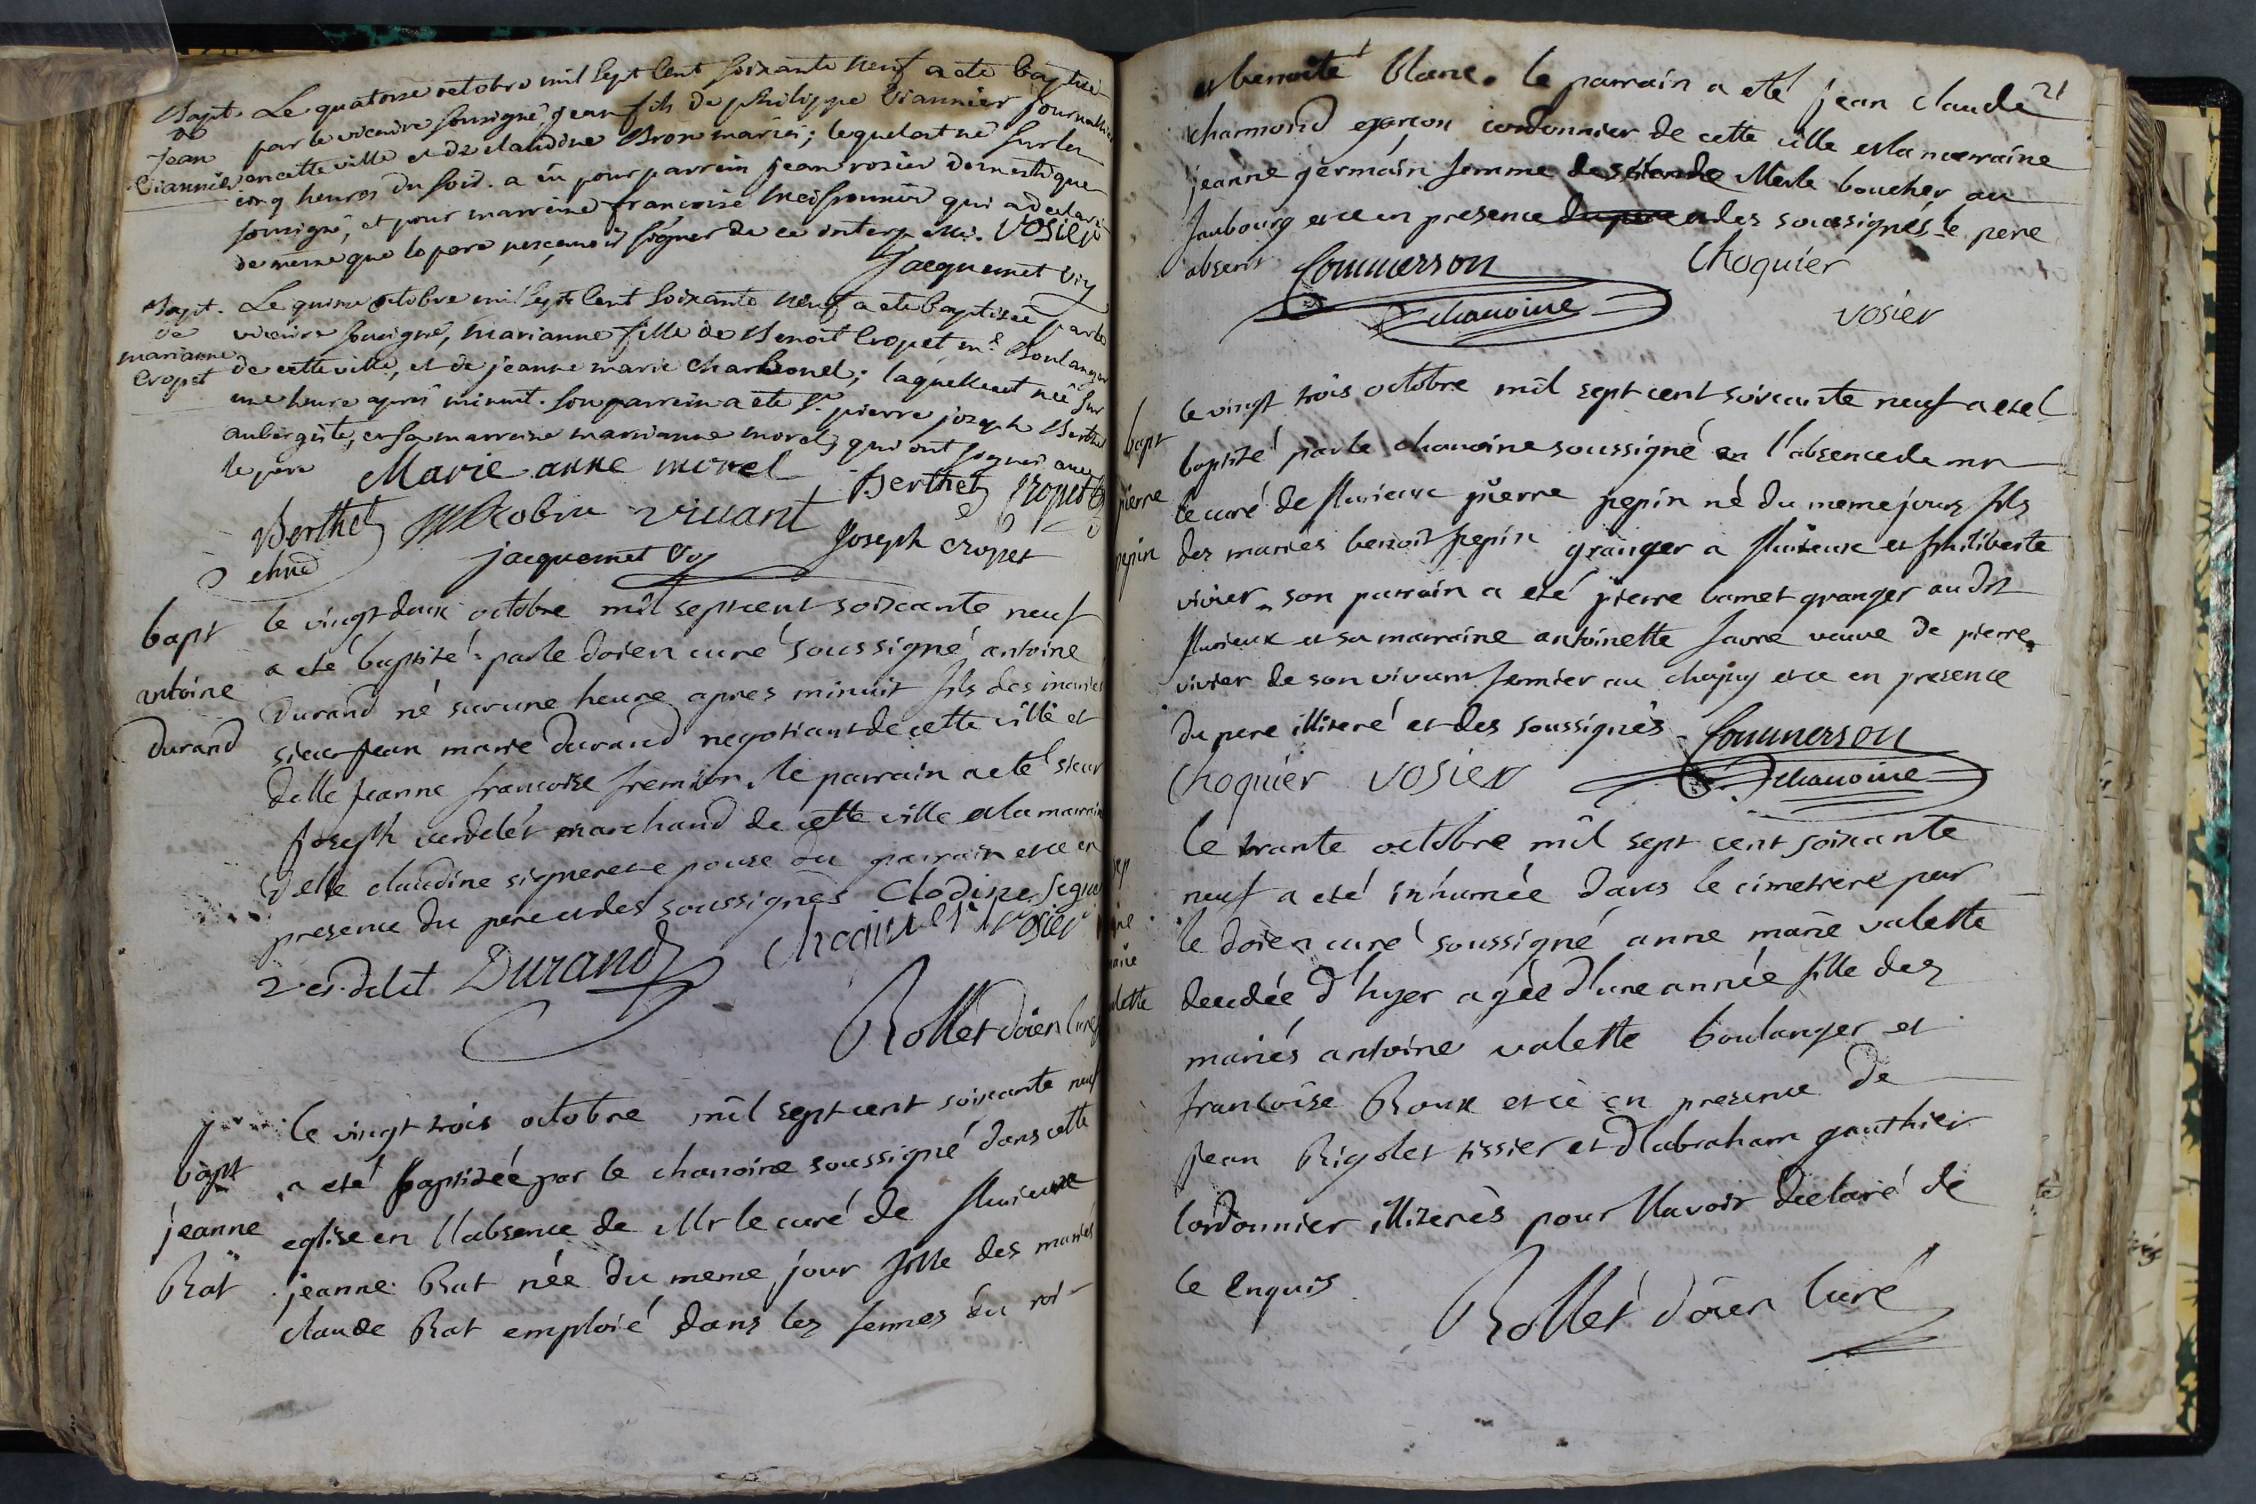 Bapt. Le quatorse octobre mil sept cent soixante neuf a ete baptisé
de par le vicaire sousigné, jean fils de philippe Viannier journallier
jean en cette ville et de claudine Bron mariés; lequel est né sur les
Viannier cinq heures du soir. a eu pour parrein jean rosier domestique
sousigné, et pour marreine francoise meissonnier qui a declaré
de meme que le pere ne sçavoir signer de ce interpellés. Vosier
jacquemet viq
Bapt. Le quinze octobre mil sept cent soixante neuf a ete baptisée par le
de vicaire sousigné, marianne fille de Benoit Cropet md Boulanger
marianne de cette ville, et de jeanne marie charbonel; laquelle est née sur
Cropet une heure après minuit. son parrein a ete Sr pierre jozeph Berthet
aubergiste, et sa marreine marianne morel; qui ont signés avec
le père Marie anne morel Berthet Cropet
Berthet M Robin vivant Joseph cropet
jacquemet viq
bapt le vingt deux octobre mil sept cent soixante neuf
a eté baptisé parle doien curé soussigné antoine
antoine Durand né sur une heure apres minuit fils des mariés
durand sieur jean marie durand negotiant de cette ville et
delle jeanne francoise fremion, le parrain a eté sieur
joseph verdelet marchand de cette ville et la marraine
delle claudine signeret epouse du parrain et ce en
presence du pere et des soussignés Clodine
Verdelet Durand Choquier Vosier
Rollet doien curé
le vingt trois octobre mil sept cent soixante neuf
bapt a eté baptisée par le chanoine soussigné dans cette
jeanne eglise en l'absence de Mr le curé de flurieux
Rat jeanne Rat née du meme jour fille des mariés
claude Rat emploié dans les fermes du roi
21
et benoite Blanc. le parrain a eté jean claude
charmond garcon cordonnier de cette ville et la marraine
jeanne germain femme de claude Merle boucher au
faubourg et ce en presence du pere et des soussignés le pere
absent Commerson Choquier
chanoine Vosier
le vingt trois octobre mil sept cent soixante neuf a eté
bapt baptisé par le chanoine soussigné en l'absence de mr
pierre le curé de flurieux pierre pepin né du meme jour fils
pepin des mariés benoit pepin granger a flurieux et philiberte
vivier, son parrain a eté pierre bamet granger au dit
flurieux et sa marraine antoinette favre veuve de pierre
vivier de son vivant fermier au chajuy et ce en presence
du pere illiteré et des soussignés Commerson
Choquier Vosier chanoine
le trante octobre mil sept cent soixante
neuf a eté inhumée dans le cimetiere par
le doien curé soussigné anne marie valette
valette decedée d'hyer agée d'une année fille des
mariés antoine valette boulanger et
francoise Roux et ce en presence de
jean Rigolet tissier et d'abraham gauthier
cordonnier illiterés pour l'avoir declaré de
ce enquis
Rollet doien curé